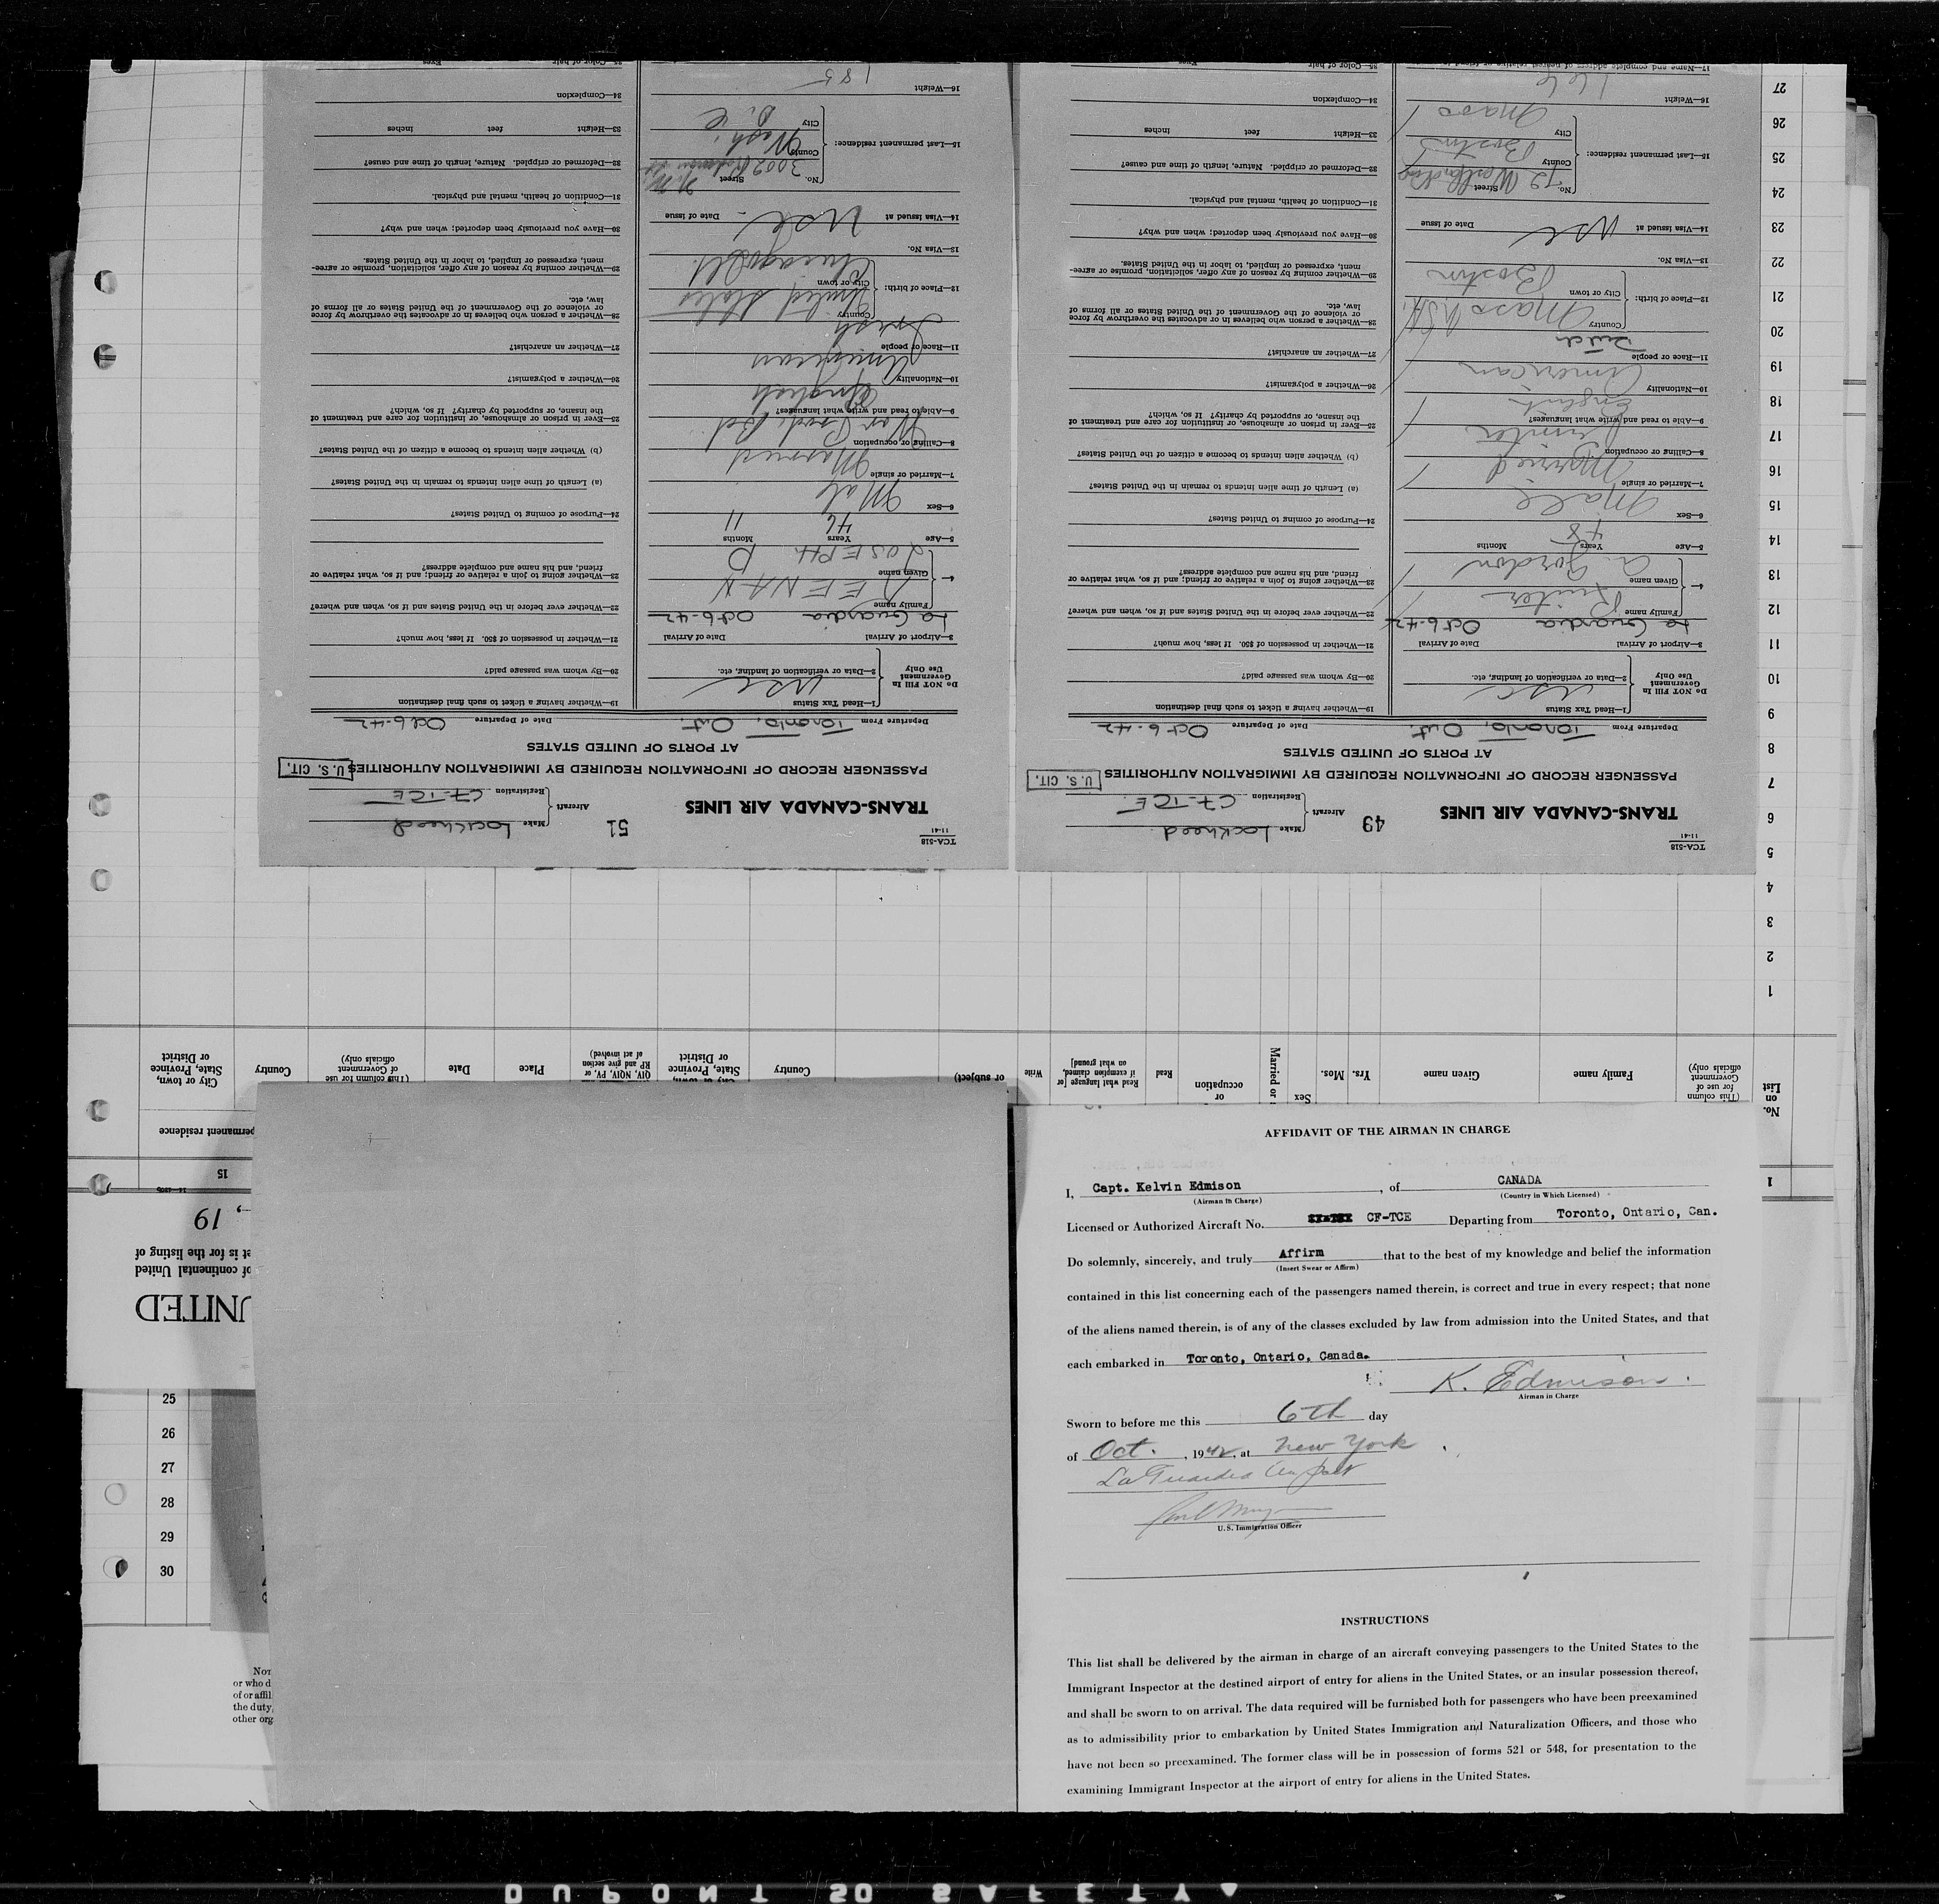 AFFIDAVIT OF THE AIRMAN IN CHARGE
I, Capt. Kelvin Edmison, of CANADA
(Airman in Charge) (Country in Which Licensed)
Licensed or Authorized Aircraft No. CF-TCE Departing from Toronto, Ontario, Can.
Do solemnly, sincerely, and truly Affirm that to the best of my knowledge and belief the information
(Insert Swear or Affirm)
contained in this list concerning each of the passengers named therein, is correct and true in every respect; that none
of the aliens named therein, is of any of the classes excluded by law from admission into the United States, and that
each embarked in Toronto, Ontario, Canada.
K. Edmison.
Airman in Charge
Sworn to before me this 6th day
of Oct., 1942, at New York
La Guardia Airport
U.S. Immigration Officer
INSTRUCTIONS
This list shall be delivered by the airman in charge of an aircraft conveying passengers to the United States to the
Immigrant Inspector at the destined airport of entry for aliens in the United States, or an insular possession thereof,
and shall be sworn to on arrival. The data required will be furnished both for passengers who have been preexamined
as to admissibility prior to embarkation by United States Immigration and Naturalization Officers, and those who
have not been so preexamined. The former class will be in possession of forms 521 or 548, for presentation to the
examining Immigrant Inspector at the airport of entry for aliens in the United States.
TCA-518
11-41
TRANS-CANADA AIR LINES 49 Aircraft
Make Lockheed
Registration CF-TCE
PASSENGER RECORD OF INFORMATION REQUIRED BY IMMIGRATION AUTHORITIES U. S. CIT.
AT PORTS OF UNITED STATES
Departure From Toronto, Ont. Date of Departure Oct 6-42
Do NOT Fill In
Government
Use Only
1—Head Tax Status
2—Data or verification of landing, etc. USC
3—Airport of Arrival Date of Arrival
La Guardia Oct 6-42
4—
Family name Ruiter
Given name A Gordon
5—Age Years 48 Months
6—Sex Male
7—Married or single Married
8—Calling or occupation
9—Able to read and write what languages? English
10—Nationality American
11—Race or people Dutch
12—Place of birth:
Country Mass USA
City or town Boston
13—Visa No.
14—Visa issued at USC Date of issue
15—Last permanent residence:
No. 72 Street
County Boston
City Mass
16—Weight 166
17—Name and complete address of nearest relative or friend
19—Whether having a ticket to such final destination
20—By whom was passage paid?
21—Whether in possession of $50. If less, how much?
22—Whether ever before in the United States and if so, when and where?
23—Whether going to join a relative or friend; and if so, what relative or
friend, and his name and complete address?
24—Purpose of coming to United States?
(a) Length of time alien intends to remain in the United States?
(b) Whether alien intends to become a citizen of the United States?
25—Ever in prison or almshouse, or institution for care and treatment of
the insane, or supported by charity? If so, which?
26—Whether a polygamist?
27—Whether an anarchist?
28—Whether a person who believes in or advocates the overthrow by force
or violence of the Government of the United States or all forms of
law, etc.
29—Whether coming by reason of any offer, solicitation, promise or agree-
ment, expressed or implied, to labor in the United States.
30—Have you previously been deported; when and why?
31—Condition of health, mental and physical.
32—Deformed or crippled. Nature, length of time and cause?
33—Height feet inches
34—Complexion
35—Color of hair Eyes
TCA-518
11-41
TRANS-CANADA AIR LINES 51 Aircraft
Make Lockheed
Registration CF-TCE
PASSENGER RECORD OF INFORMATION REQUIRED BY IMMIGRATION AUTHORITIES U. S. CIT.
AT PORTS OF UNITED STATES
Departure From Toronto, Ont. Date of Departure Oct 6-42
Do NOT Fill In
Government
Use Only
1—Head Tax Status
2—Data or verification of landing, etc. USC
3—Airport of Arrival Date of Arrival
La Guardia Oct 6-42
4—
Family name KEENAN
Given name JOSEPH D
5—Age Years 46 Months 11
6—Sex Male
7—Married or single Married
8—Calling or occupation War Prod. Bd
9—Able to read and write what languages? English
10—Nationality American
11—Race or people Irish
12—Place of birth:
Country United States
City or town Chicago Ill.
13—Visa No.
14—Visa issued at USC Date of issue
15—Last permanent residence:
No. 3002 Street N.W.
County Wash
City D.C
16—Weight 185
19—Whether having a ticket to such final destination
20—By whom was passage paid?
21—Whether in possession of $50. If less, how much?
22—Whether ever before in the United States and if so, when and where?
23—Whether going to join a relative or friend; and if so, what relative or
friend, and his name and complete address?
24—Purpose of coming to United States?
(a) Length of time alien intends to remain in the United States?
(b) Whether alien intends to become a citizen of the United States?
25—Ever in prison or almshouse, or institution for care and treatment of
the insane, or supported by charity? If so, which?
26—Whether a polygamist?
27—Whether an anarchist?
28—Whether a person who believes in or advocates the overthrow by force
or violence of the Government of the United States or all forms of
law, etc.
29—Whether coming by reason of any offer, solicitation, promise or agree-
ment, expressed or implied, to labor in the United States.
30—Have you previously been deported; when and why?
31—Condition of health, mental and physical.
32—Deformed or crippled. Nature, length of time and cause?
33—Height feet inches
34—Complexion
35—Color of hair Eyes
UNITED
of continental United
et is for the listing of
, 19
1
15
permanent residence
No.
on
List
(This column
for use of
Government
officials only)
Family name
Given name
Yrs.
Mos.
Sex
Married or
or
occupation
Read
Read what language [or
if exemption claimed,
on what ground]
Write
or subject)
Country
City or town,
State, Province
or District
QIV, NQIV, PV, or
RP and give section
of act involved)
Place
Date
(This column for use
of Government
officials only)
Country
City or town,
State, Province
or District
1
2
3
4
5
6
7
8
9
10
11
12
13
14
15
16
17
18
19
20
21
22
23
24
25
26
27
25
26
27
28
29
30
NOT
or who d
of or affil
the duty,
other org
DUPONT SO SAFETY